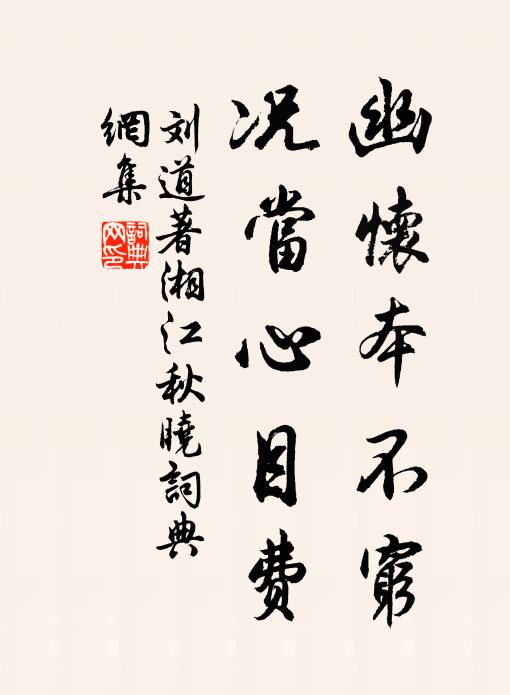 幽懷本不窮
况當心目费
刘道著湘江秋曉詞典
網集
詞典
网印